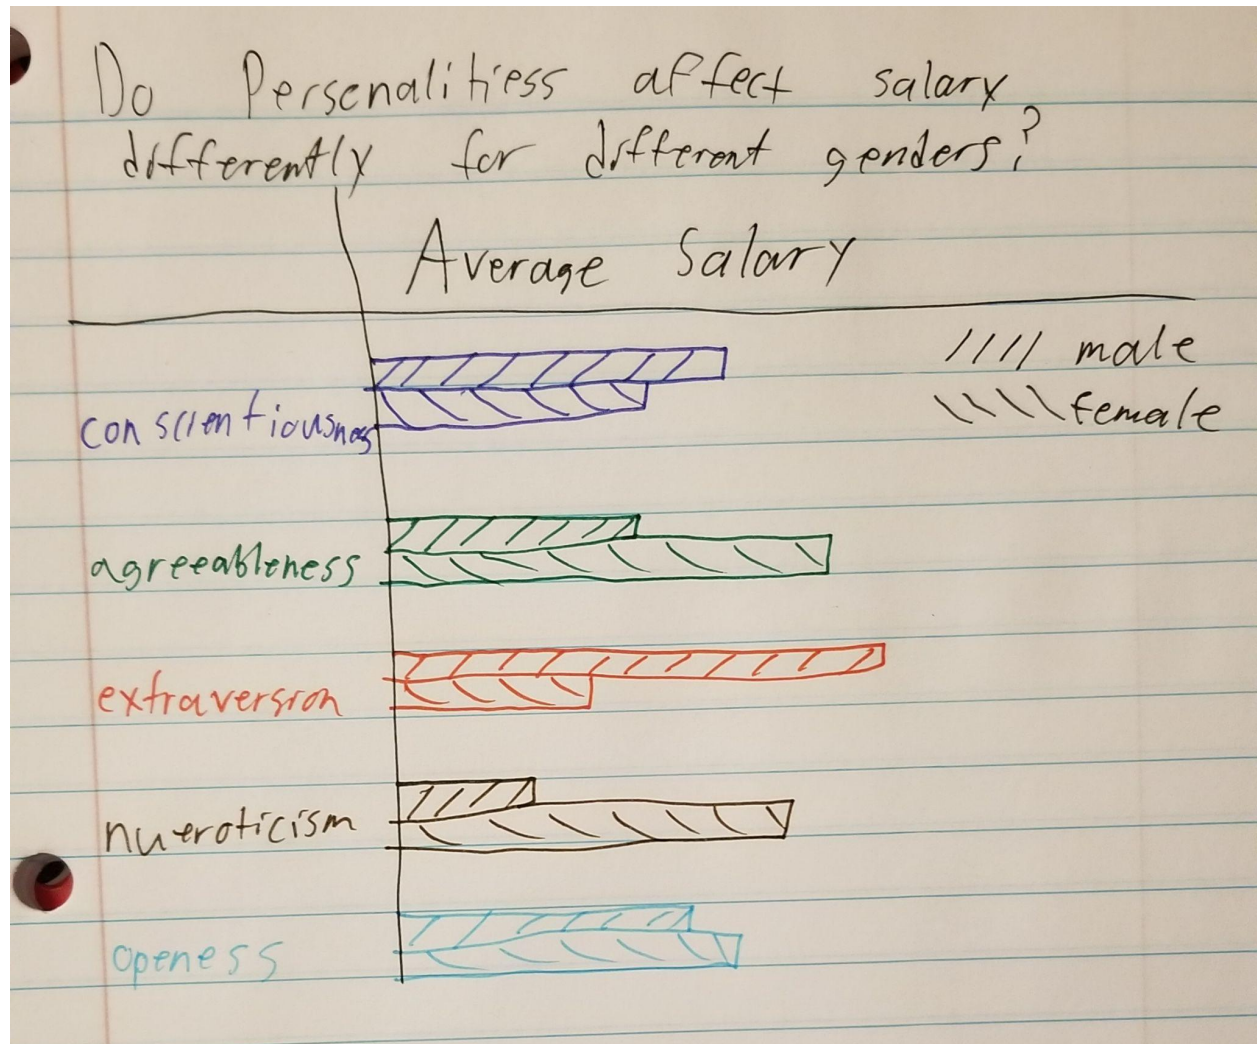 Do Personalitiess affect salary
differently for different genders?
Average Salary
//// male
\\\\ female
conscientiousness
agreeableness
extraversion
nueroticism
openess